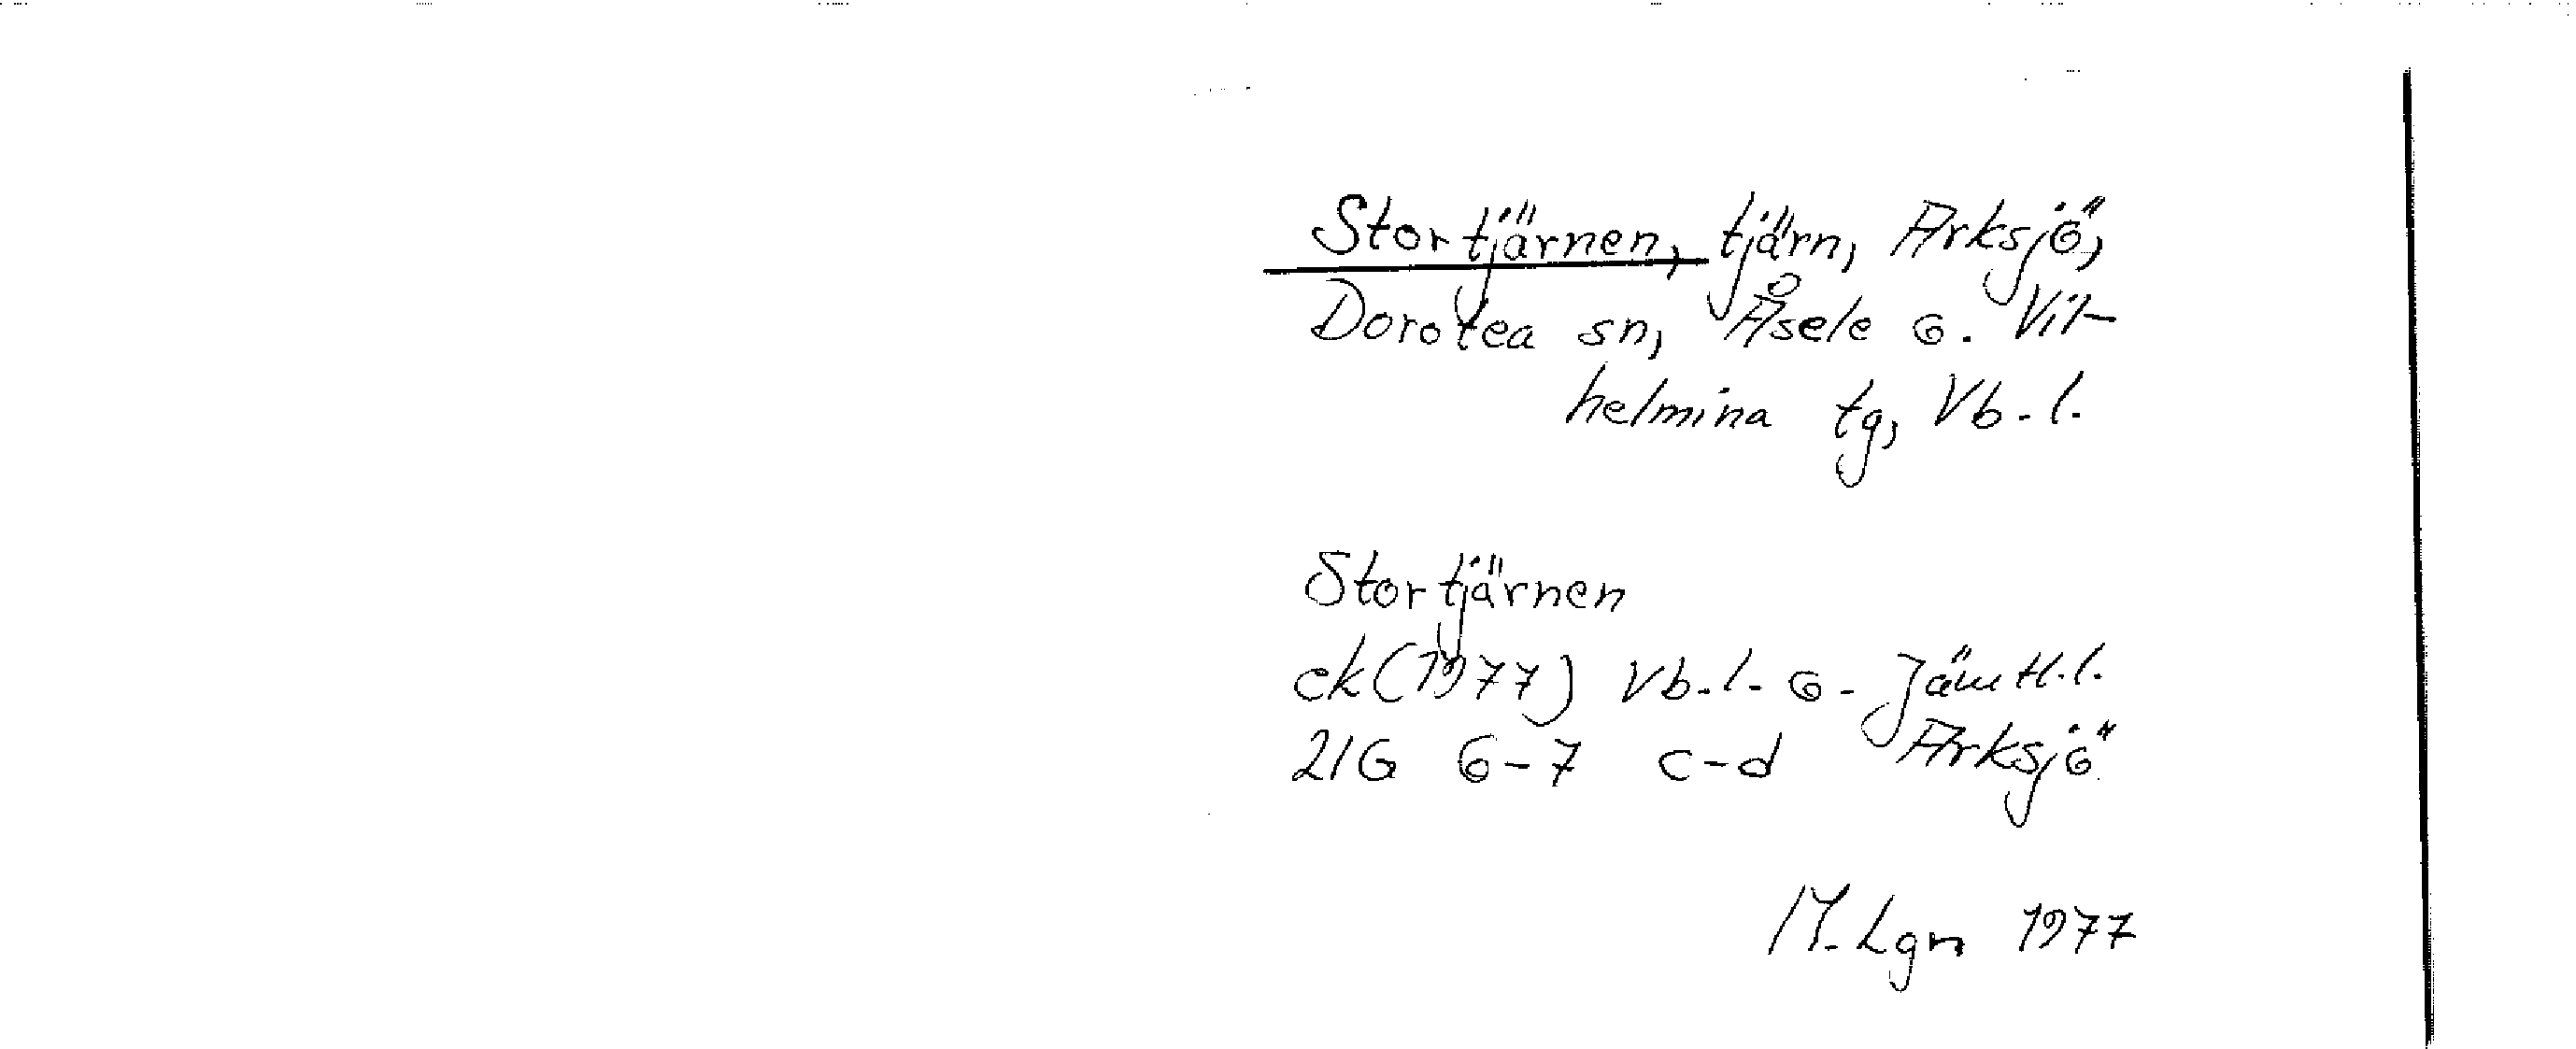 Stortjärnen, tjärn, Arksjö,
Dorotea sn, Åsele o. Vil-
helmina tg, Vb. l.
Stortjärnen
ek (1977) Vb. l. o. Jämtl. l.
21G 6-7 c-d Arksjö
M. Lgn 1977